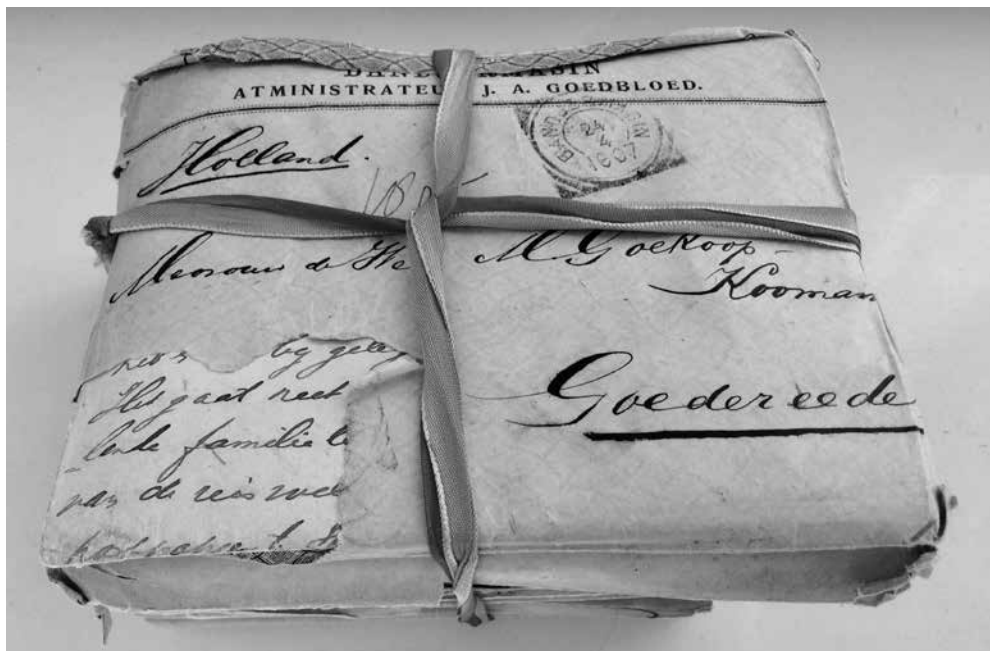 ATMINISTRATEU J. A. GOEDBLOED.
Holland.
BANDJ
24
V
1907
Mevrouw de We M. Goekoop-
Kooman
Goedereede
reis by geleg
Het gaat neet
lende familie le
van de reis wee